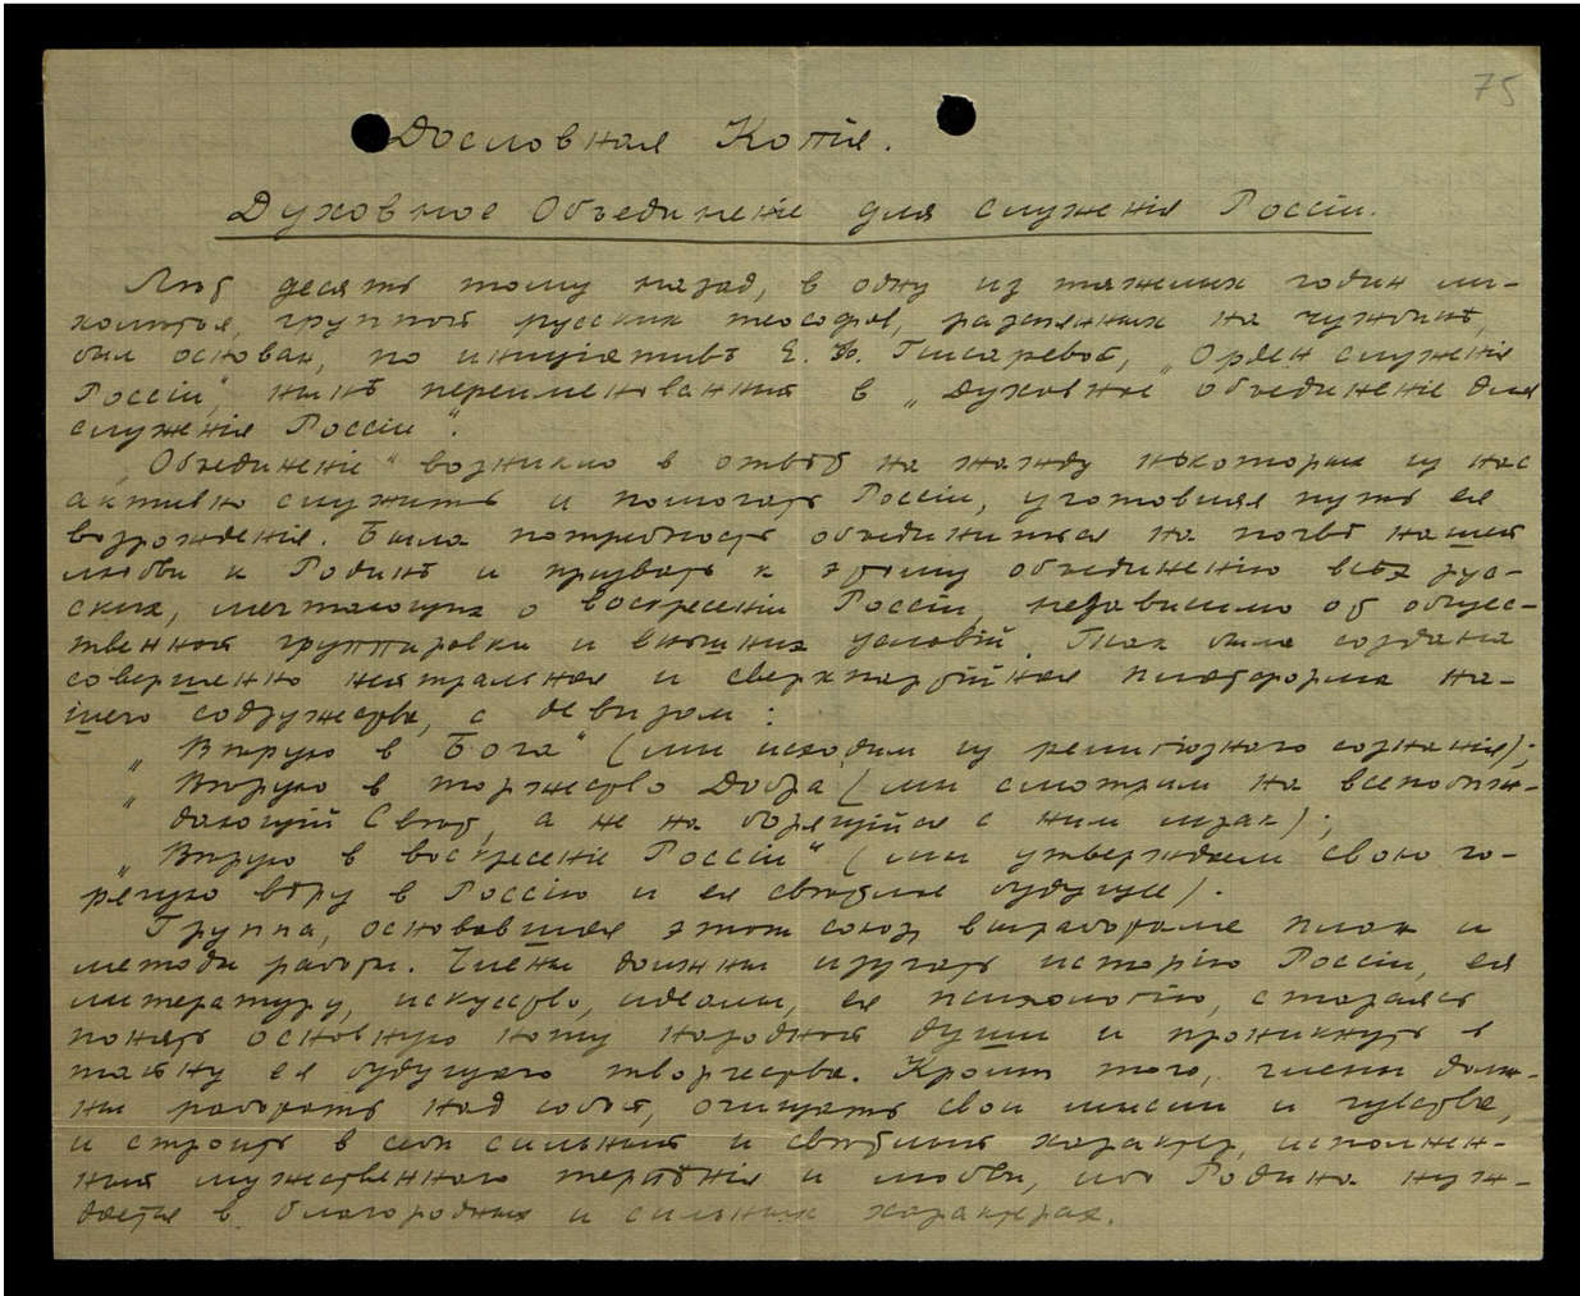 75
Дословная Копія.
Духовное Объединеніе для служенія Россіи.
Лѣт десять тому назад, в одну из тяжелых годин ли-
холѣтья, группой русских теософов, разсѣянных на чужбинѣ,
был основан, по инициативѣ Е. Ф. Писаревой, „Орден служенія
Россіи", нынѣ переименованный в „Духовное объединеніе для
служенія Россіи".
„Объединеніе" возникло в отвѣт на жажду нѣкоторых из нас
активно служить и помогать Россіи, уготовляя путь ея
возрожденія. Была потребность объединиться на почвѣ нашей
любви к Родинѣ и призвать к этому объединенію всѣх рус-
ских, мечтающих о воскресеніи Россіи, независимо от общес-
твенной группировки и внѣшних условій. Так была создана
совершенно нейтральная и сверхпартійная платформа на-
шего содружества, с девизом:
„Вѣрую в Бога" (мы исходим из религіознаго сознанія);
„Вѣрую в торжество Добра (мы смотрим на всепобѣж-
дающій Свѣт, а не на борящійся с ним мрак);
„Вѣрую в воскресеніе Россіи" (мы утверждаем свою го-
рячую вѣру в Россію и ея свѣтлое будущее).
Группа, основавшая этот союз, выработала план и
методы работы. Члены должны изучать исторію Россіи, ея
литературу, искусство, идеалы, ея психологію, стараясь
понять основную ноту народной души и проникнуть в
тайну ея будущаго творчества. Кромѣ того, члены долж-
ны работать над собой, очищать свои мысли и чувства,
и строить в себѣ сильный и свѣтлый характер, исполнен-
ный мужественнаго терпѣнія и любви, ибо Родина нуж-
дается в благородных и сильных характерах.